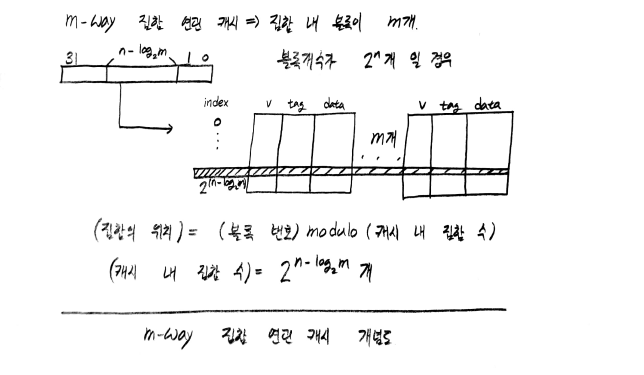 m-way 집합 연관 캐시 => 집합 내 블록이 m개.
31 n-log₂m 1 0
블록개수가 2ⁿ개 일 경우
index v tag data v tag data
0
m개
2^(n-log₂m)
(집합의 위치) = (블록 번호) modulo (캐시 내 집합 수)
(캐시 내 집합 수) = 2^n-log₂m 개
m-way 집합 연관 캐시 개념도